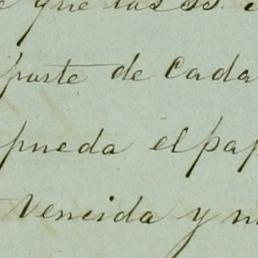 que las
parte de Cada
pueda el pap
Vencida y m